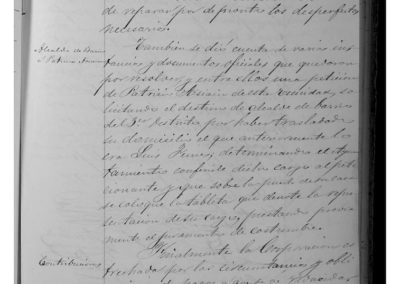 de reparar por de pronto los desperfectos
necesarios.
Alcalde de Barrio
a Patricio
Tambien se dió cuenta de varias ins-
tancias y documentos oficiales que quedaron
por resolver, y entre ellos una peticion
de Patricio de esta vecindad, so-
licitando el destino de Alcalde de barrio
del 1er distrito por haber trasladado
su domicilio el que anteriormente lo
era Luis determinando el Ayun-
tamiento conferir dicho cargo al peti-
cionante y que sobre la puerta de su casa
se coloque la tableta que denote la repre-
sentacion de su cargo, prestando previa-
mente el juramento de costumbre.
Contribuciones
Finalmente la Corporacion es-
trechada por las circunstancias y obli-